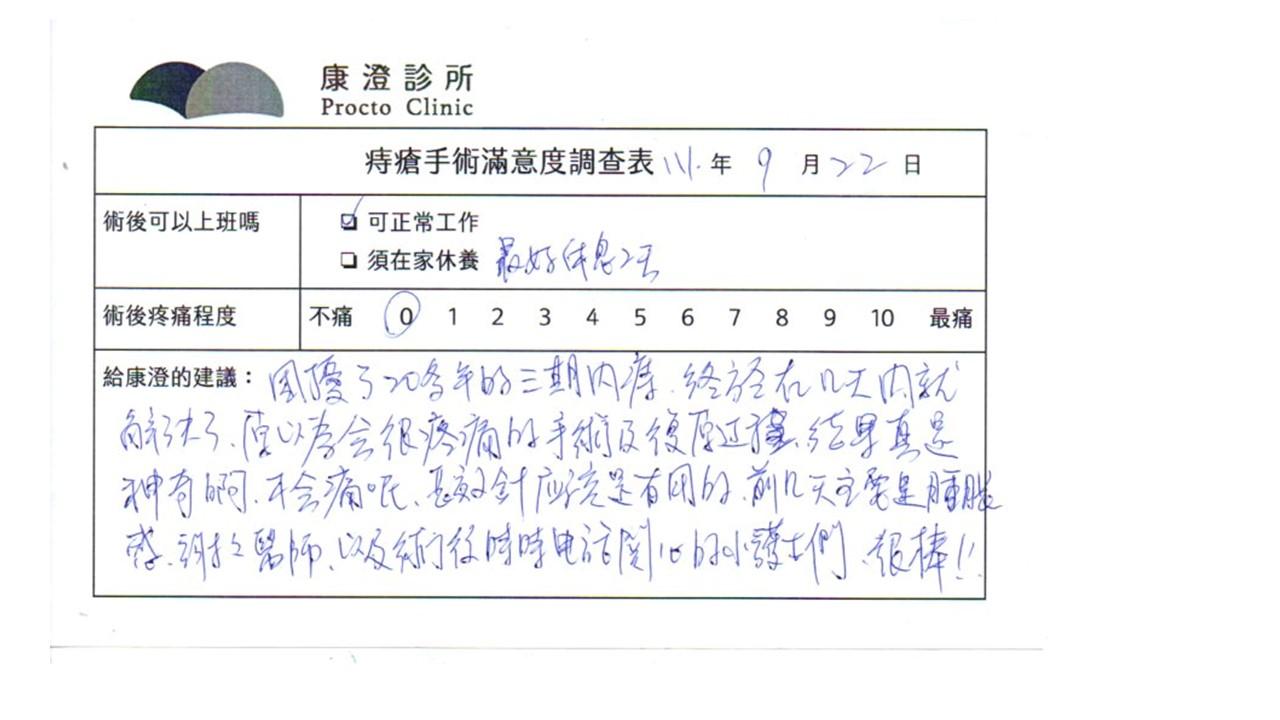 康澄診所
Procto Clinic
痔瘡手術滿意度調查表 111. 年 9 月 22 日
術後可以上班嗎
☑ 可正常工作
☐ 須在家休養 最好休息2天
術後疼痛程度 不痛 0 1 2 3 4 5 6 7 8 9 10 最痛
給康澄的建議： 困擾了20多年的三期內痔、終於在几天內就
解決了、原以為會很疼痛的手術及復原过程、結果真是
神奇啊、不会痛呢、長效針应該是有用的、前几天主要是腫脹
感、謝謝醫師、以及術後時時电話関心的小護士們、很棒!!